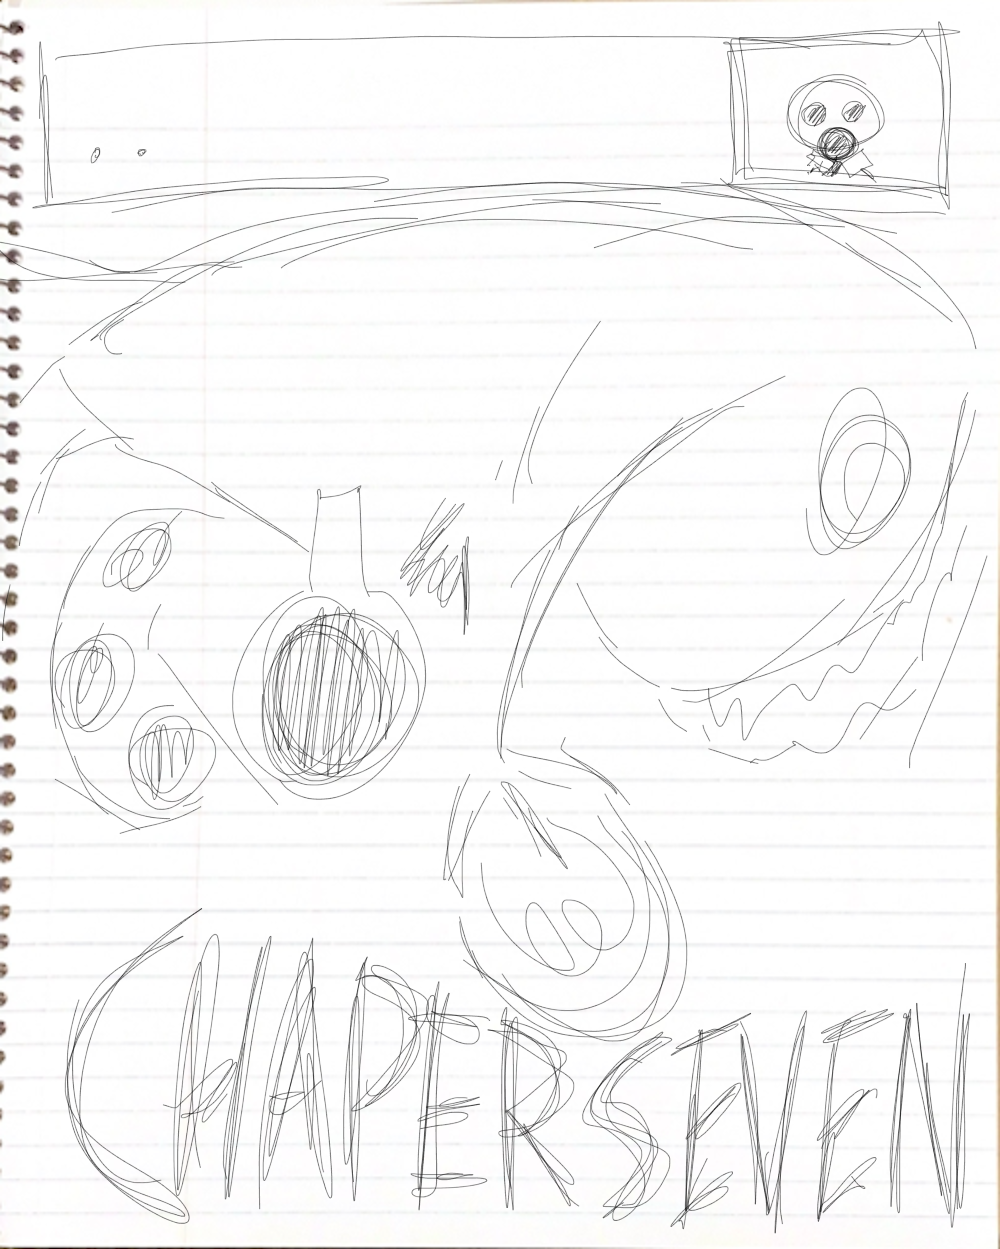 CHAPER SEVEN